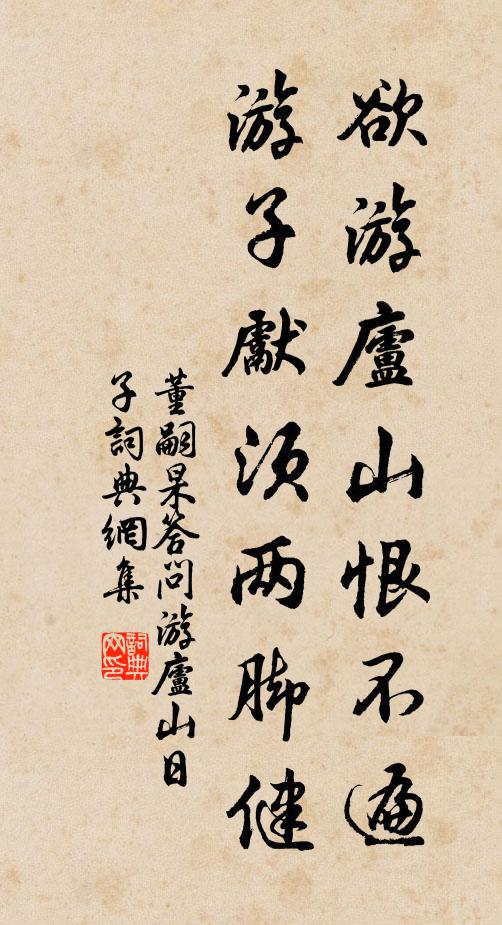 欲游廬山恨不遍
游子獻须两脚健
董嗣杲答問游廬山日
子詞典網集
詞典網印